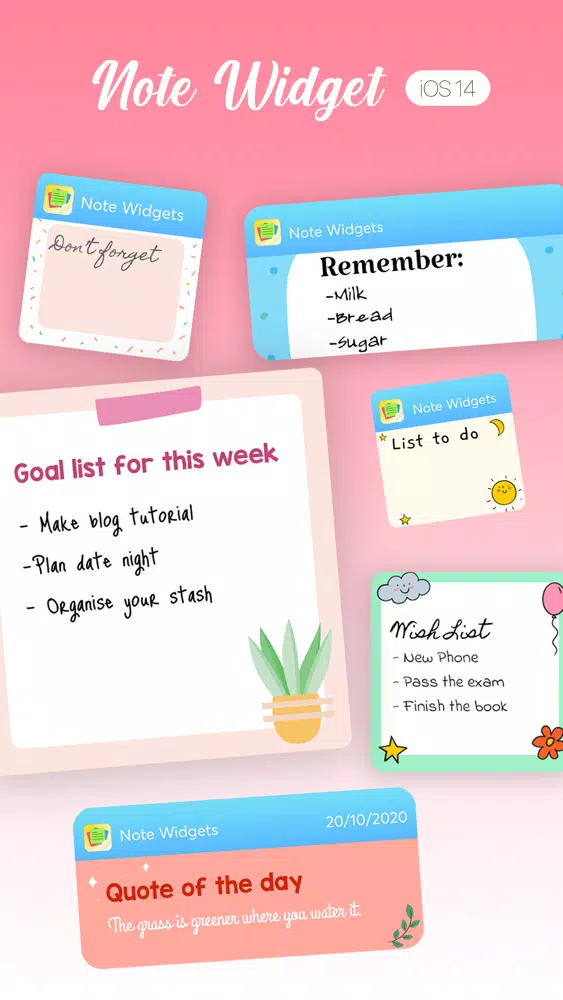 Note Widget iOS 14
Note Widgets
Don't forget
Note Widgets
Remember:
-Milk
-Bread
-Sugar
Goal list for this week
- Make blog tutorial
-Plan date night
- Organise your stash
Note Widgets
List to do
Wish List
- New Phone
- Pass the exam
- Finish the book
Note Widgets 20/10/2020
Quote of the day
The grass is greener where you water it.